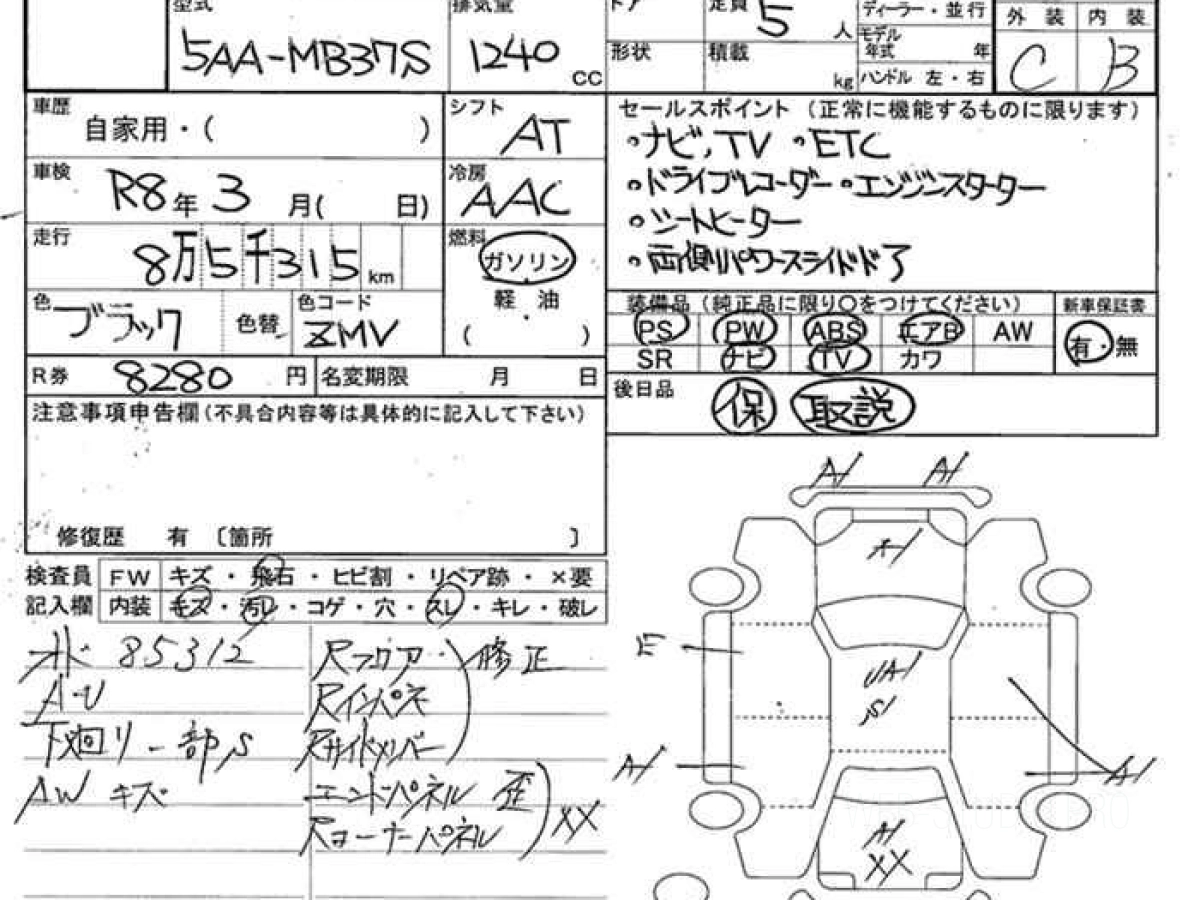 型式 排気量 ドア 定員 5 人 ディーラー・並行 外装 内装
5AA-MB37S 1240 CC 形状 積載 kg モデル年式 年 C B
ハンドル 左・右
車歴 自家用・( ) シフト AT
セールスポイント (正常に機能するものに限ります)
・ナビ,TV ・ETC
車検 R8年 3月( 日) 冷房 AAC
・ドライブレコーダー・エンジンスターター
・シートヒーター
走行 8万5千315km 燃料 ガソリン
・両側パワースライドドア
軽・油
( )
色 ブラック 色替 色コード ZMV
装備品 (純正品に限り○をつけてください) 新車保証書
PS PW ABS エアB AW 有・無
SR ナビ TV カワ
R券 8280 円 名変期限 月 日
後日品 保 取説
注意事項申告欄(不具合内容等は具体的に記入して下さい)
修復歴 有 〔箇所 〕
検査員 FW キズ・飛石・ヒビ割・リペア跡・×要
記入欄 内装 キズ・汚レ・コゲ・穴・スレ・キレ・破レ
オド 85312
A-U
下廻り一部S
AW キズ
Rフロア 修正
Rインパネ
Rサイドメンバー
エンドパネル 歪
Rコーナーパネル XX
A1 A1
A1
E
UA1
S1
A1
A1
A1
XX